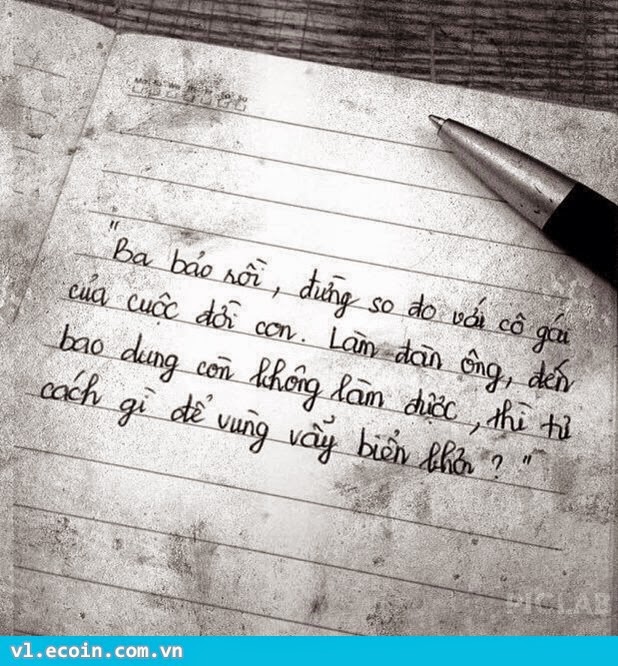 "Ba bảo rồi, đừng so đo với cô gái
của cuộc đời con. Làm đàn ông, đến
bao dung còn không làm được, thì tư
cách gì để vùng vẫy biển khơi?"
PICLAB
vl.ecoin.com.vn